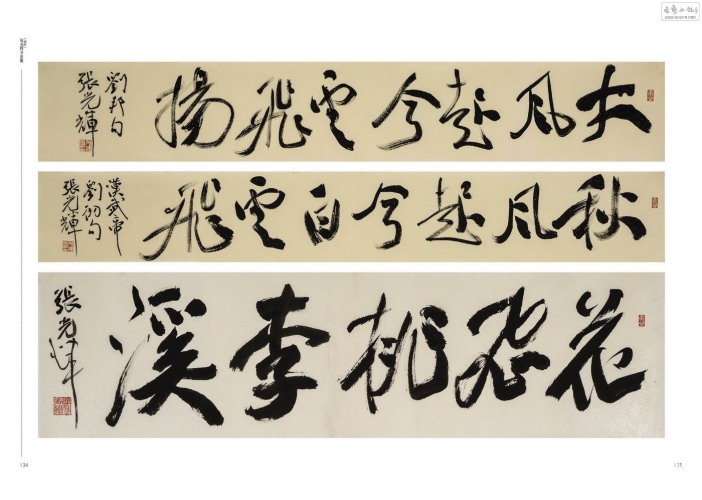 大風起兮雲飛揚
劉邦句
張光輝
秋風起兮白雲飛
漢武帝
劉徹句
張光輝
花飛桃李溪
張光輝
134
135